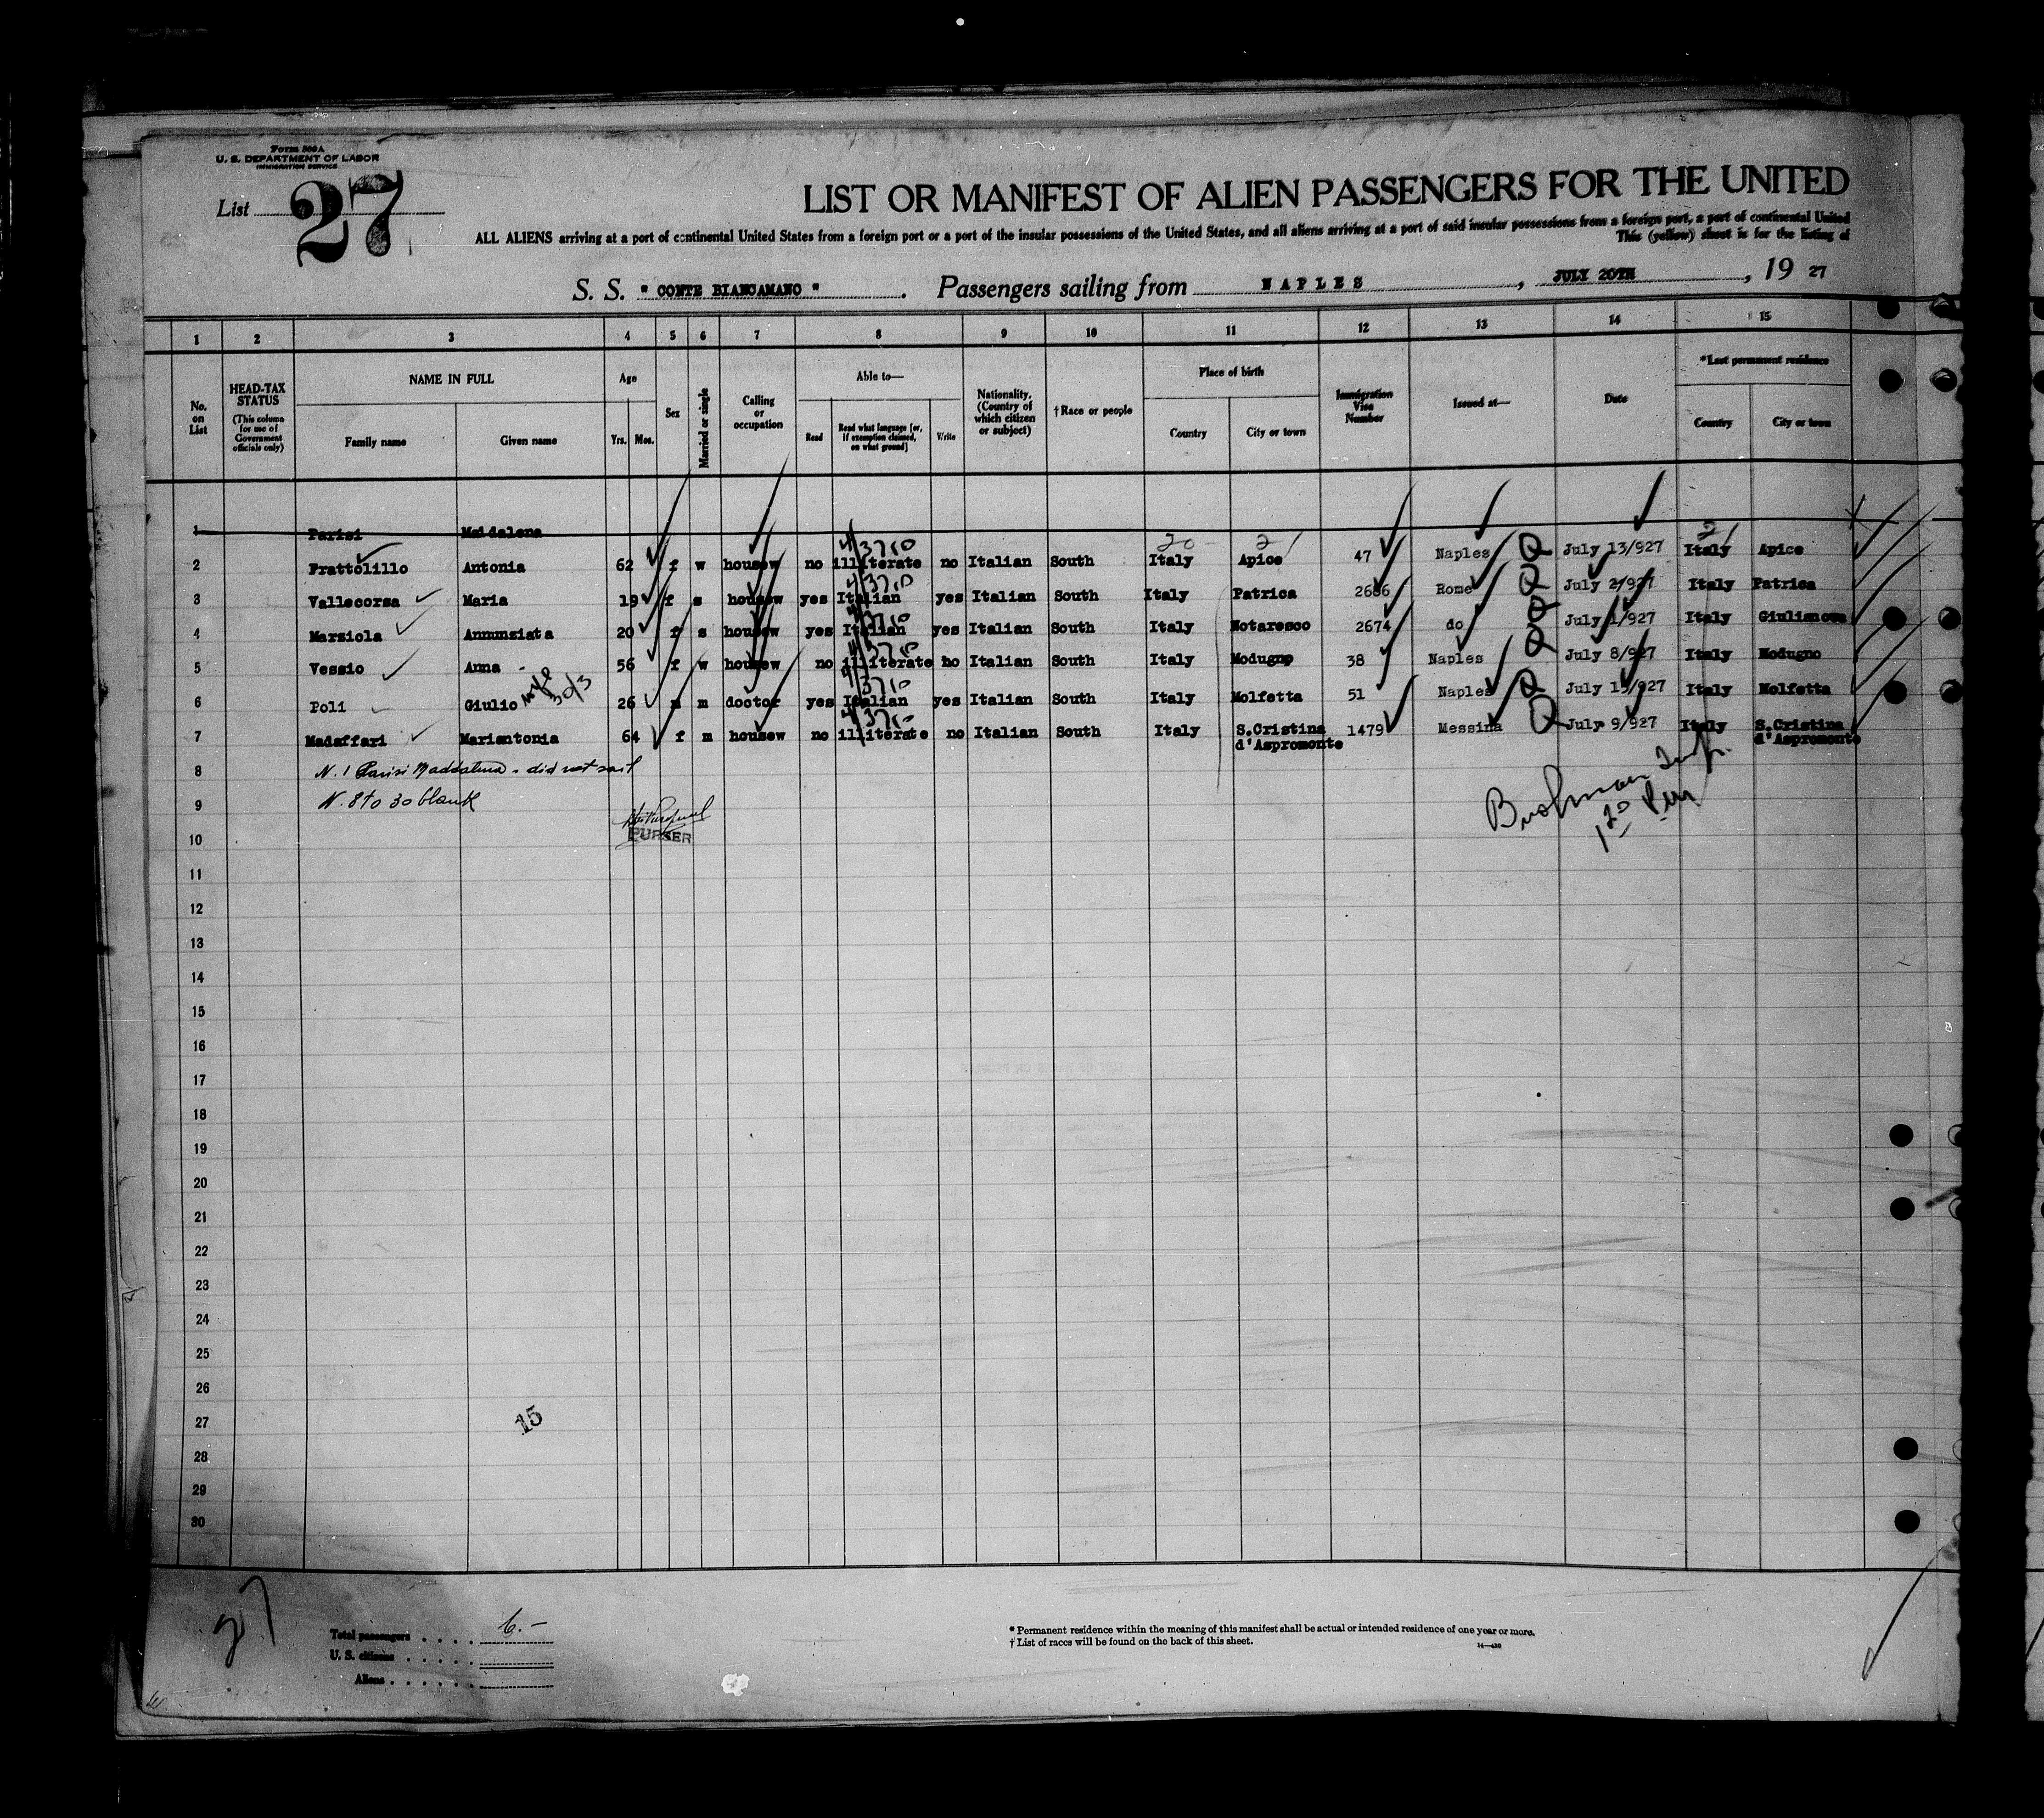 Form 500 A
U. S. DEPARTMENT OF LABOR
IMMIGRATION SERVICE
List 27
LIST OR MANIFEST OF ALIEN PASSENGERS FOR THE UNITED
ALL ALIENS arriving at a port of continental United States from a foreign port or a port of the insular possessions of the United States, and all aliens arriving at a port of said insular possessions from a foreign port, a port of continental United
This (yellow) sheet is for the listing of
S. S. " CONTE BIANCAMANO " . Passengers sailing from NAPLES , JULY 20TH , 19 27
1 2 3 4 5 6 7 8 9 10 11 12 13 14 15
No. on List
HEAD-TAX STATUS (This column for use of Government officials only)
NAME IN FULL Family name Given name
Age Yrs. Mos.
Sex
Married or single
Calling or occupation
Able to— Read Read what language [or, if exemption claimed, on what ground] Write
Nationality. (Country of which citizen or subject)
†Race or people
Place of birth Country City or town
Immigration Visa Number
Issued at—
Date
*Last permanent residence Country City or town
1 Parisi Maddalena
20 2 2
2 Frattolillo Antonia 62 f w housew no illiterate no Italian South Italy Apice 47 Naples July 13/927 Italy Apice
3 Vallecorsa Maria 19 f s housew yes Italian yes Italian South Italy Patrica 2686 Rome July 2/927 Italy Patrica
4 Marziola Annunziata 20 f s housew yes Italian yes Italian South Italy Notaresco 2674 do July 1/927 Italy Giulianova
5 Vessio Anna - 56 f w housew no illiterate no Italian South Italy Modugno 38 Naples July 8/927 Italy Modugno
6 Poli Giulio wife 30/3 26 m m doctor yes Italian yes Italian South Italy Molfetta 51 Naples July 13/927 Italy Molfetta
7 Madaffari Mariantonia 64 f m housew no illiterate no Italian South Italy S.Cristina d'Aspromonte 1479 Messina July 9/927 Italy S.Cristina d'Aspromonte
8 N. 1 Parisi Maddalena - did not sail
9 N. 8 to 30 blank
10 PURSER
11
12
13
14
15
16
17
18
19
20
21
22
23
24
25
26
27 15
28
29
30
27
Total passengers . . . . 6.-
U. S. citizens . . . . .
Aliens . . . . . .
* Permanent residence within the meaning of this manifest shall be actual or intended residence of one year or more.
† List of races will be found on the back of this sheet.
14—430